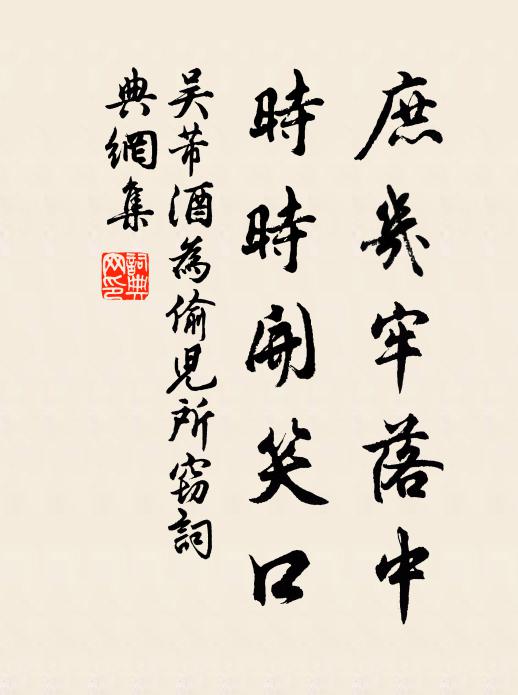 庶幾牢落中
時時開笑口
吳芾酒為偷兒所竊詞
典網集
詞典網印